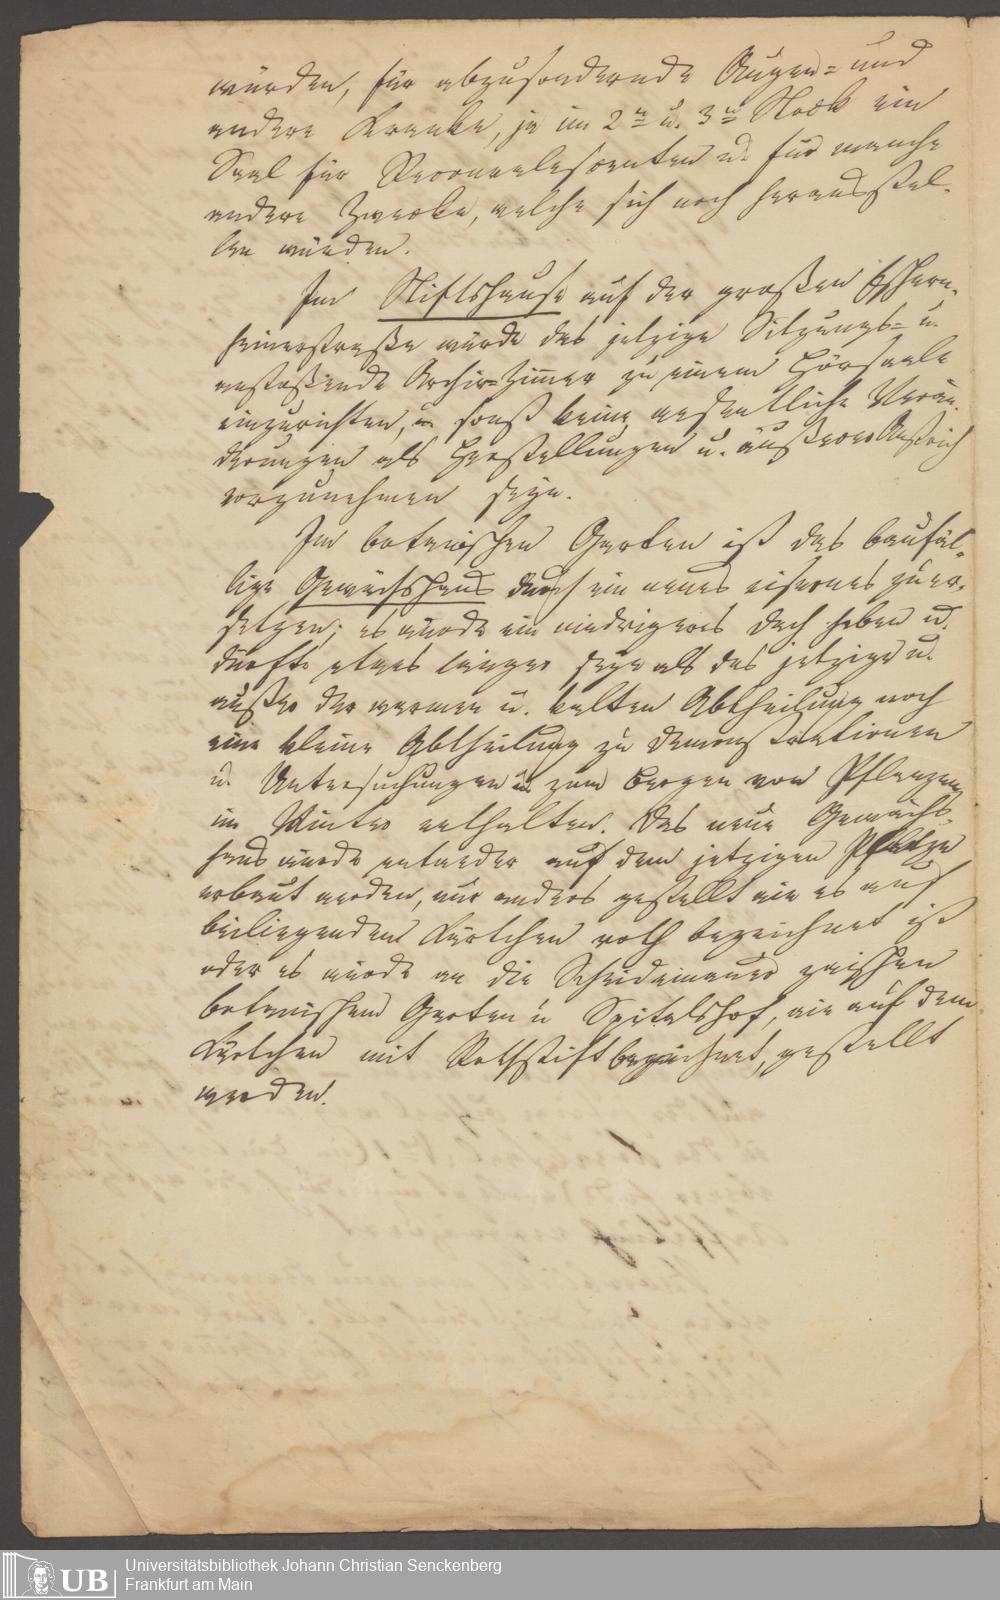 würden, für abzusondernde Augen= und
andere Kranke, ja im 2n u. 3n Stock ein
Saal für Reconvalescenten u. für manche
andere Zwecke, welche sich noch herausstel-
len würden.
Im Stiftshause auf der großen Eschers-
heimerstraße würde das jetzige Sitzungs= u.
anstoßende Archiv=Zimmer zu einem Hörsaale
einzurichten, u. sonst keine wesentliche Verän-
derungen als Herstellungen u. äußeren Anstrich
vorzunehmen seyn.
Im botanischen Garten ist das baufäl-
lige Gewächshaus durch ein neues eisernes zu er-
setzen; es würde ein niedrigeres Dach haben u.
dürfte etwas länger seyn als das jetzige u.
außer der warmen u. kalten Abtheilung noch
eine kleine Abtheilung zu Demonstrationen
u. Untersuchungen u. zum Bergen von Pflanzen
im Winter enthalten. Das neue Gewächs-
haus würde entweder auf dem jetzigen Platze
erbaut werden, nur anders gestellt wie es auf
beiliegendem Kärtchen roth bezeichnet ist
oder es würde an die Scheidemauer zwischen
botanischem Garten u Spitalshof, wie auf dem
Kärtchen mit Rothstift bezeichnet, gestellt
werden.
UB
Universitätsbibliothek Johann Christian Senckenberg
Frankfurt am Main